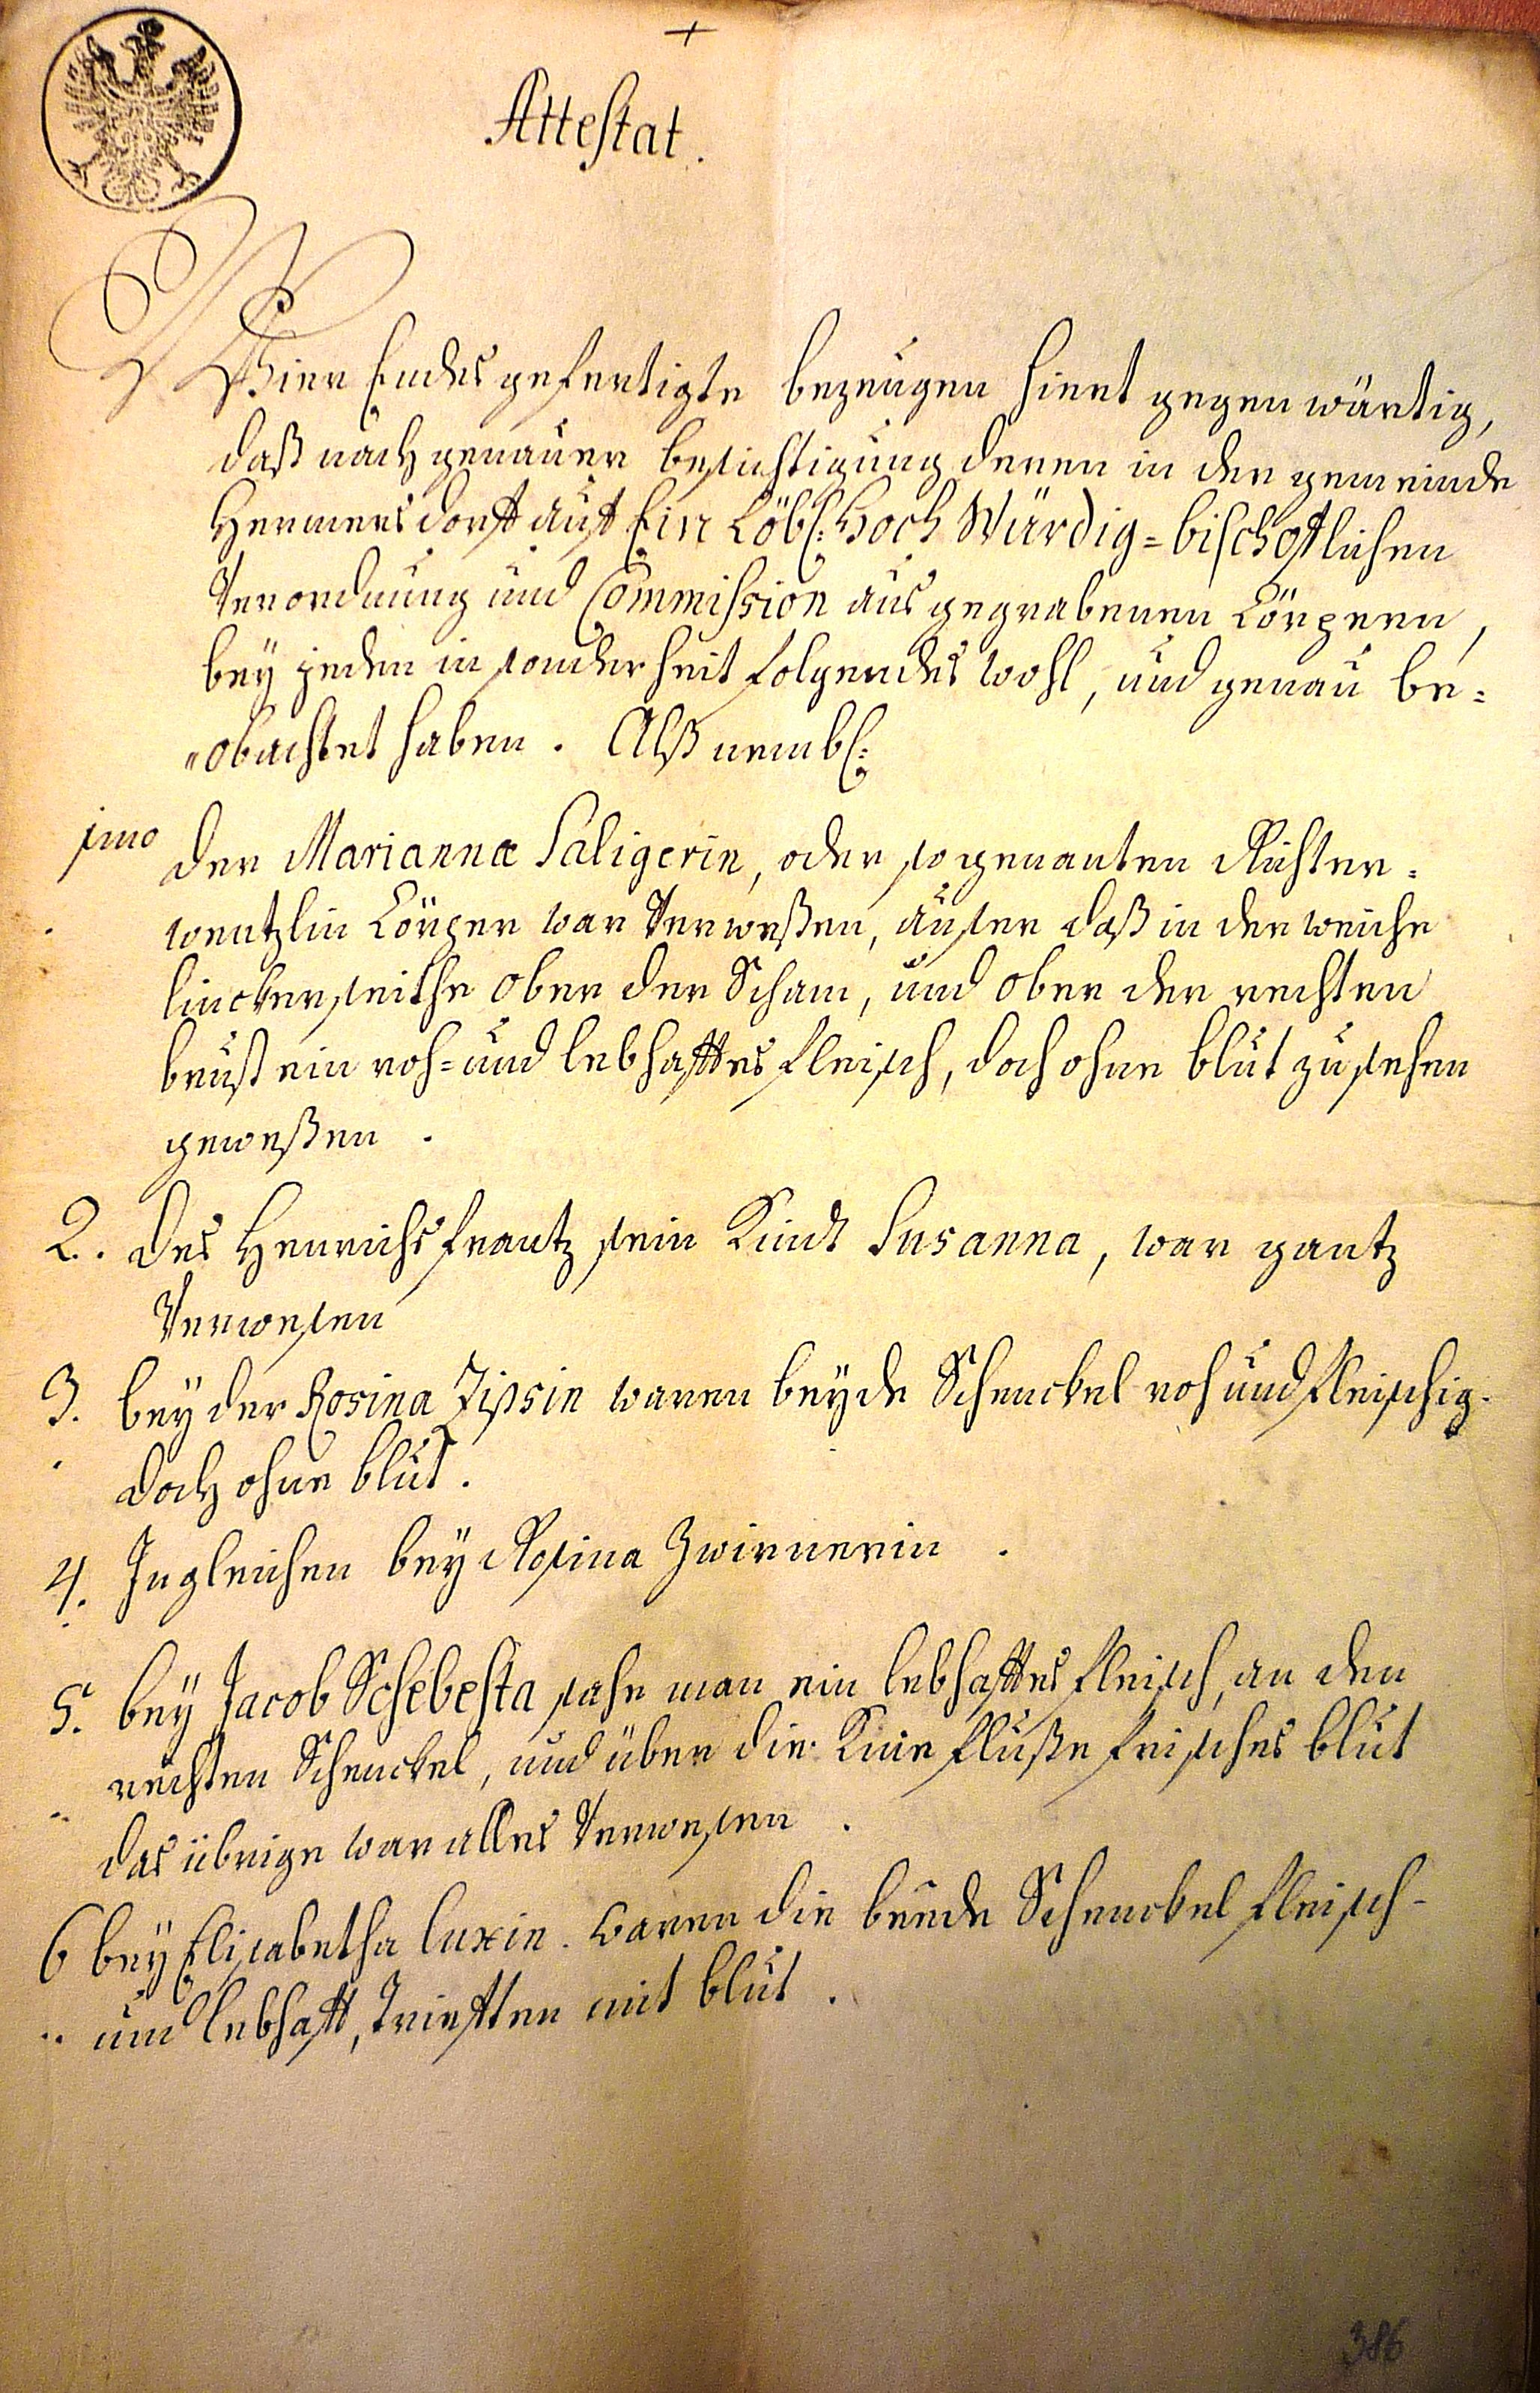 Attestat.
Wier Endes gefertigte bezeugen hiemt gegenwärtig,
daß nach genauer besichtigung deren in der gemeinde
Hermersdorff auff Ein Löbl: Hoch Würdig=bischofflichen
Verordnung und Commission ausgegrabenen Cörpern,
bey jeden in sonderheit folgendes wohl, und genau be=
"obachtet haben. Alß nembl:
1mo der Marianna Saligerin, oder sogenanten Richter=
wentzlin Cörper war Verweßen, außer daß in der weiche
lincker seithe ober der Scham, und ober der rechten
brust ein roh= und lebhafftes fleisch, doch ohne blut zu sehen
geweßen.
2. des Henrichs frantz sein Kindt Susanna, war gantz
Verwesen
3. bey der Rosina Zipsin waren beyde Schenckel roh und fleischig.
doch ohne blut.
4. Ingleichen bey Rosina Zwirnerin.
5. bey Jacob Schebesta sahe man ein lebhafftes fleisch, an den
rechten Schenckel, und über die Knie fluße frisches blut
das übrige war alles Verwesen.
6 bey Elisabetha Luxin. waren die beede Schenckel fleisch-
und lebhafft, Triefften mit blut.
386